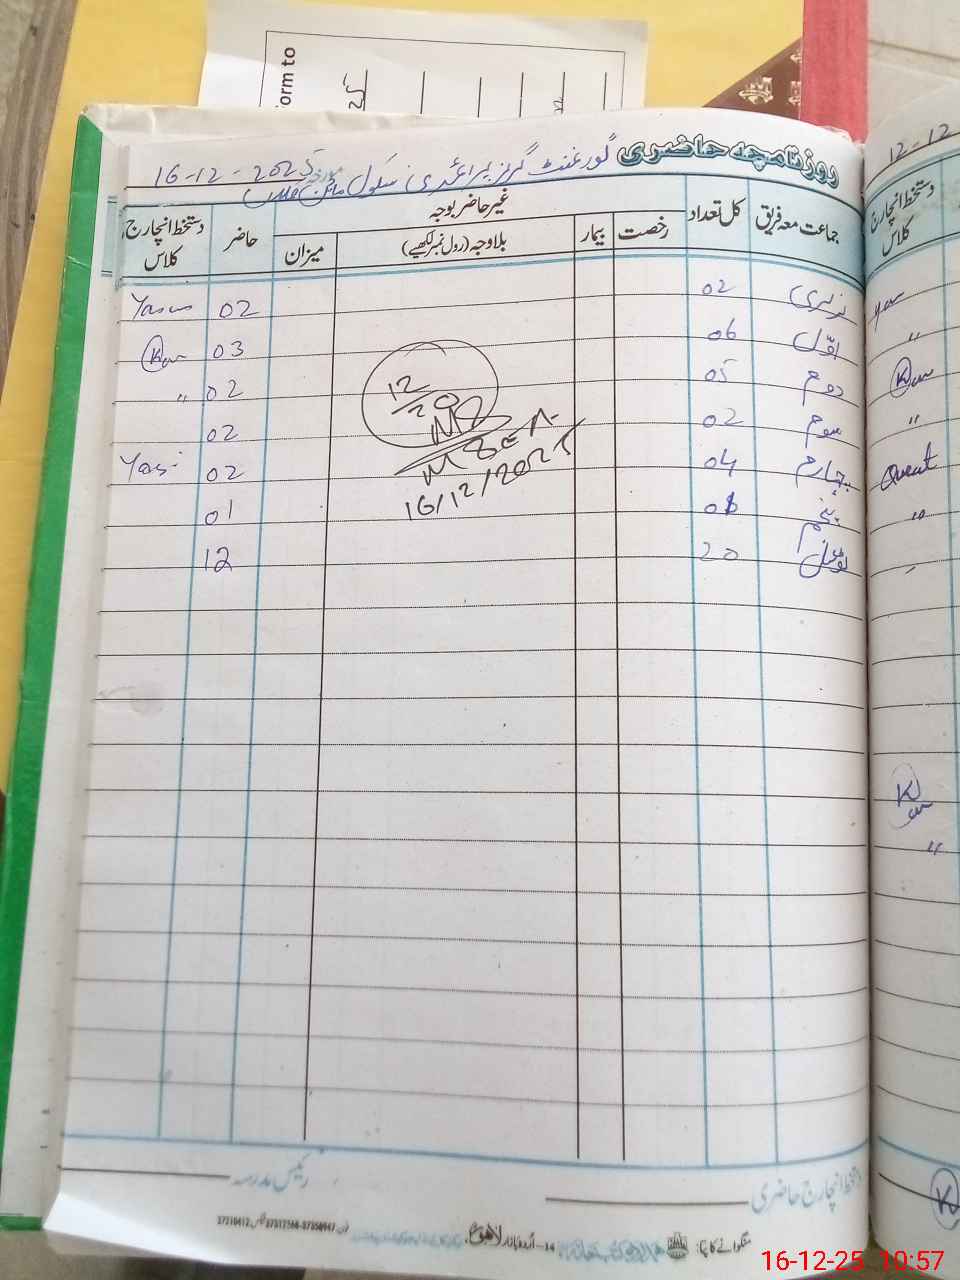 form to
روزنامچہ حاضری گورنمنٹ گرلز پرائمری سکول 16-12-2025
جماعت معہ فریق کل تعداد رخصت بیمار غیر حاضر بوجہ بلاوجہ (رول نمبر لکھیے) میزان حاضر دستخط انچارج کلاس
نرسری 02 02
اوّل 06 03
دوم 05 " 02
سوم 02 02
چہارم 04 02
پنجم 01 01
ٹوٹل 20 12
12/20
16/12/2025
دستخط انچارج حاضری
رئیس مدرسہ
منگوانے کا پتہ:
14-اردو بازار لاہور
12-12
دستخط انچارج کلاس
"
"
"
"
16-12-25 10:57